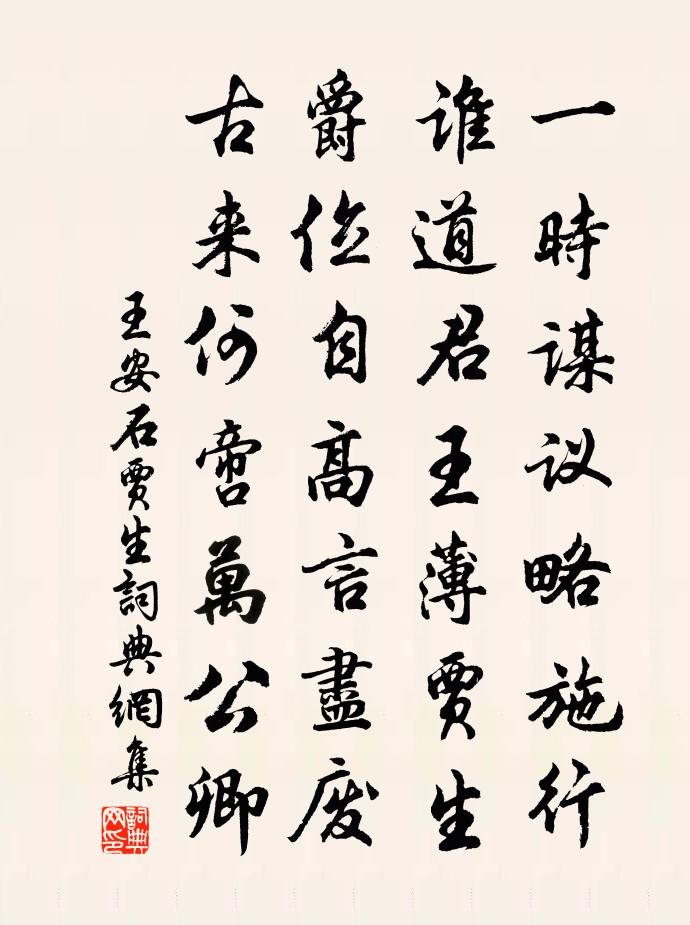 一時謀议略施行
誰道君王薄賈生
爵位自高言盡廢
古来何啻萬公卿
王安石賈生詞典網集
詞典网印